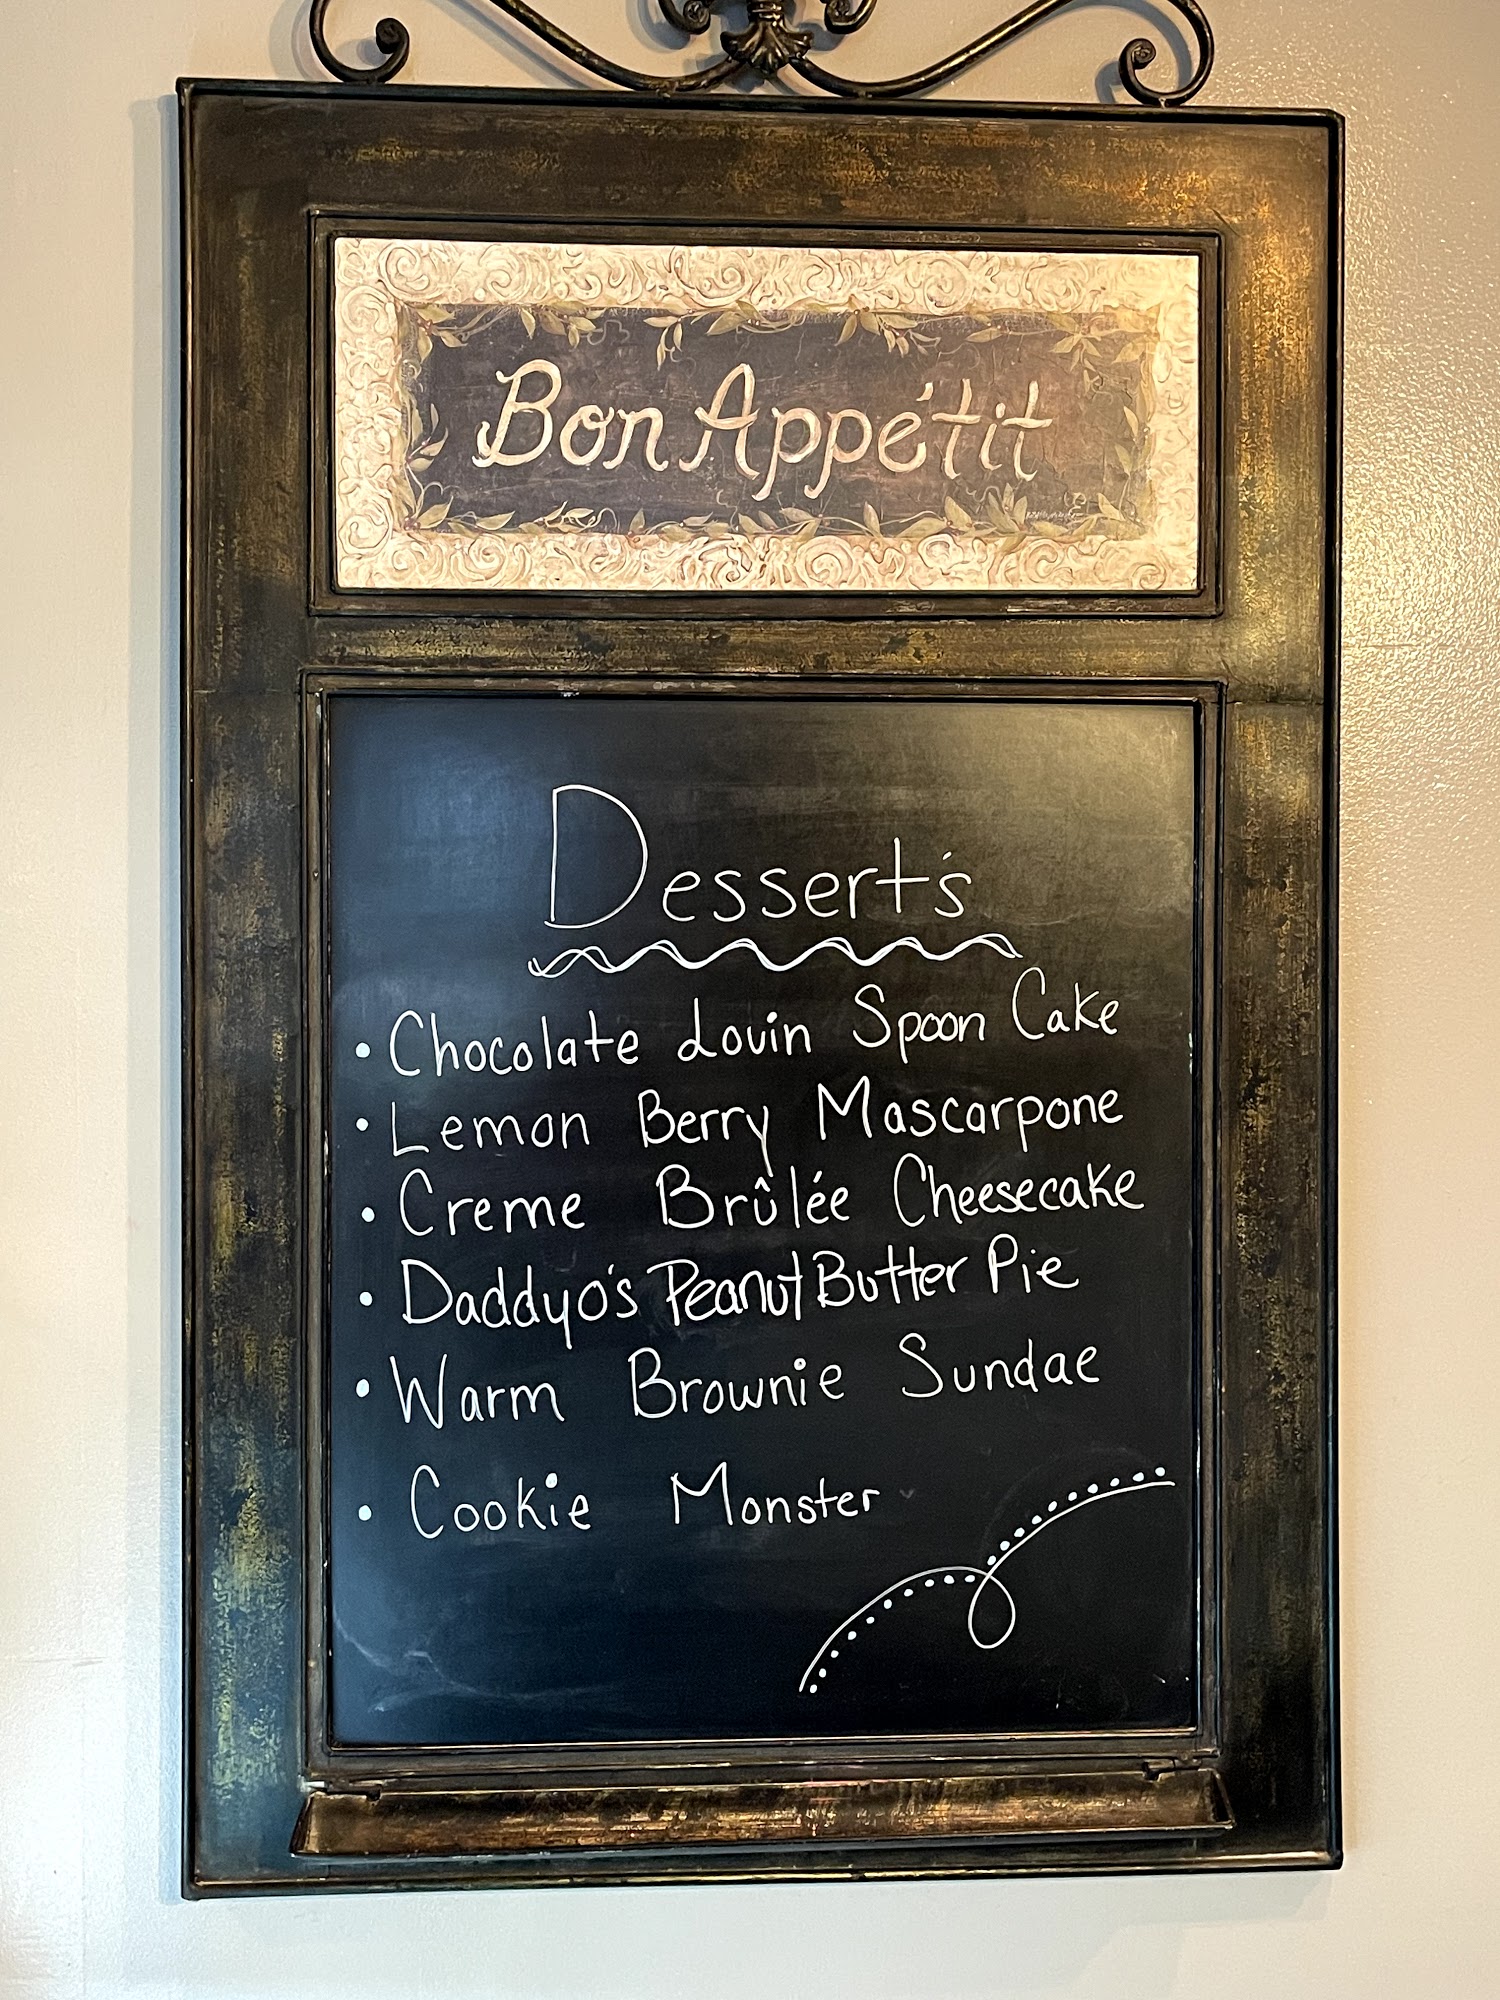 Bon Appétit
Dessert's
• Chocolate Lovin Spoon Cake
• Lemon Berry Mascarpone
• Creme Brûlée Cheesecake
• Daddyo's Peanut Butter Pie
• Warm Brownie Sundae
• Cookie Monster